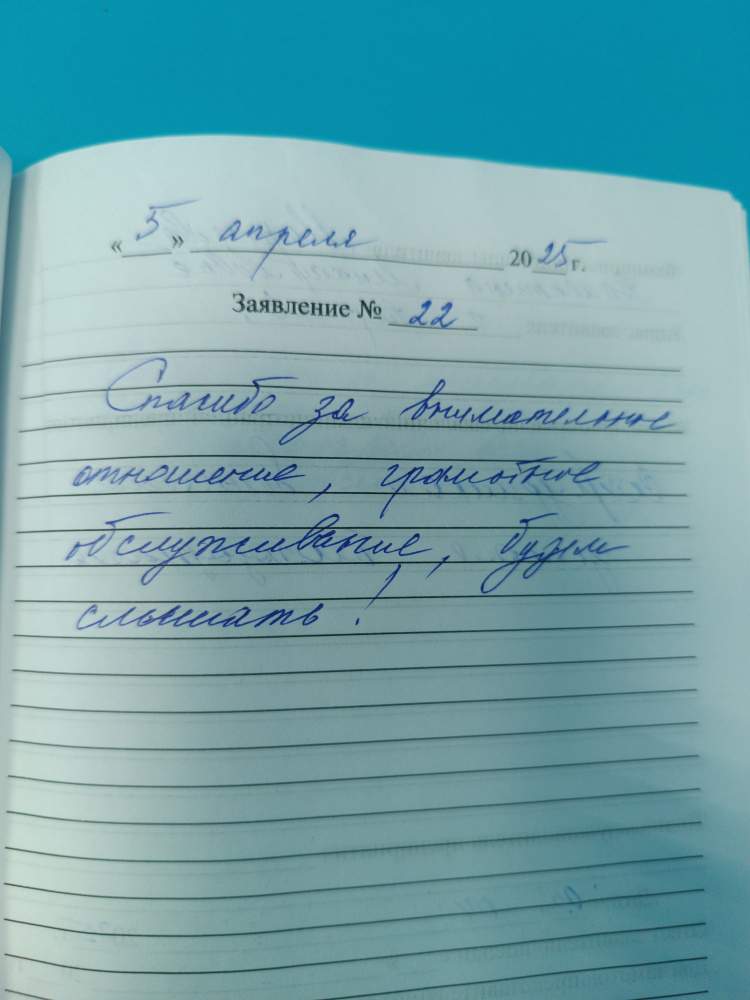 «5» апреля 2025 г.
Заявление № 22
Спасибо за внимательное
отношение, грамотное
обслуживание, будем
слышать!